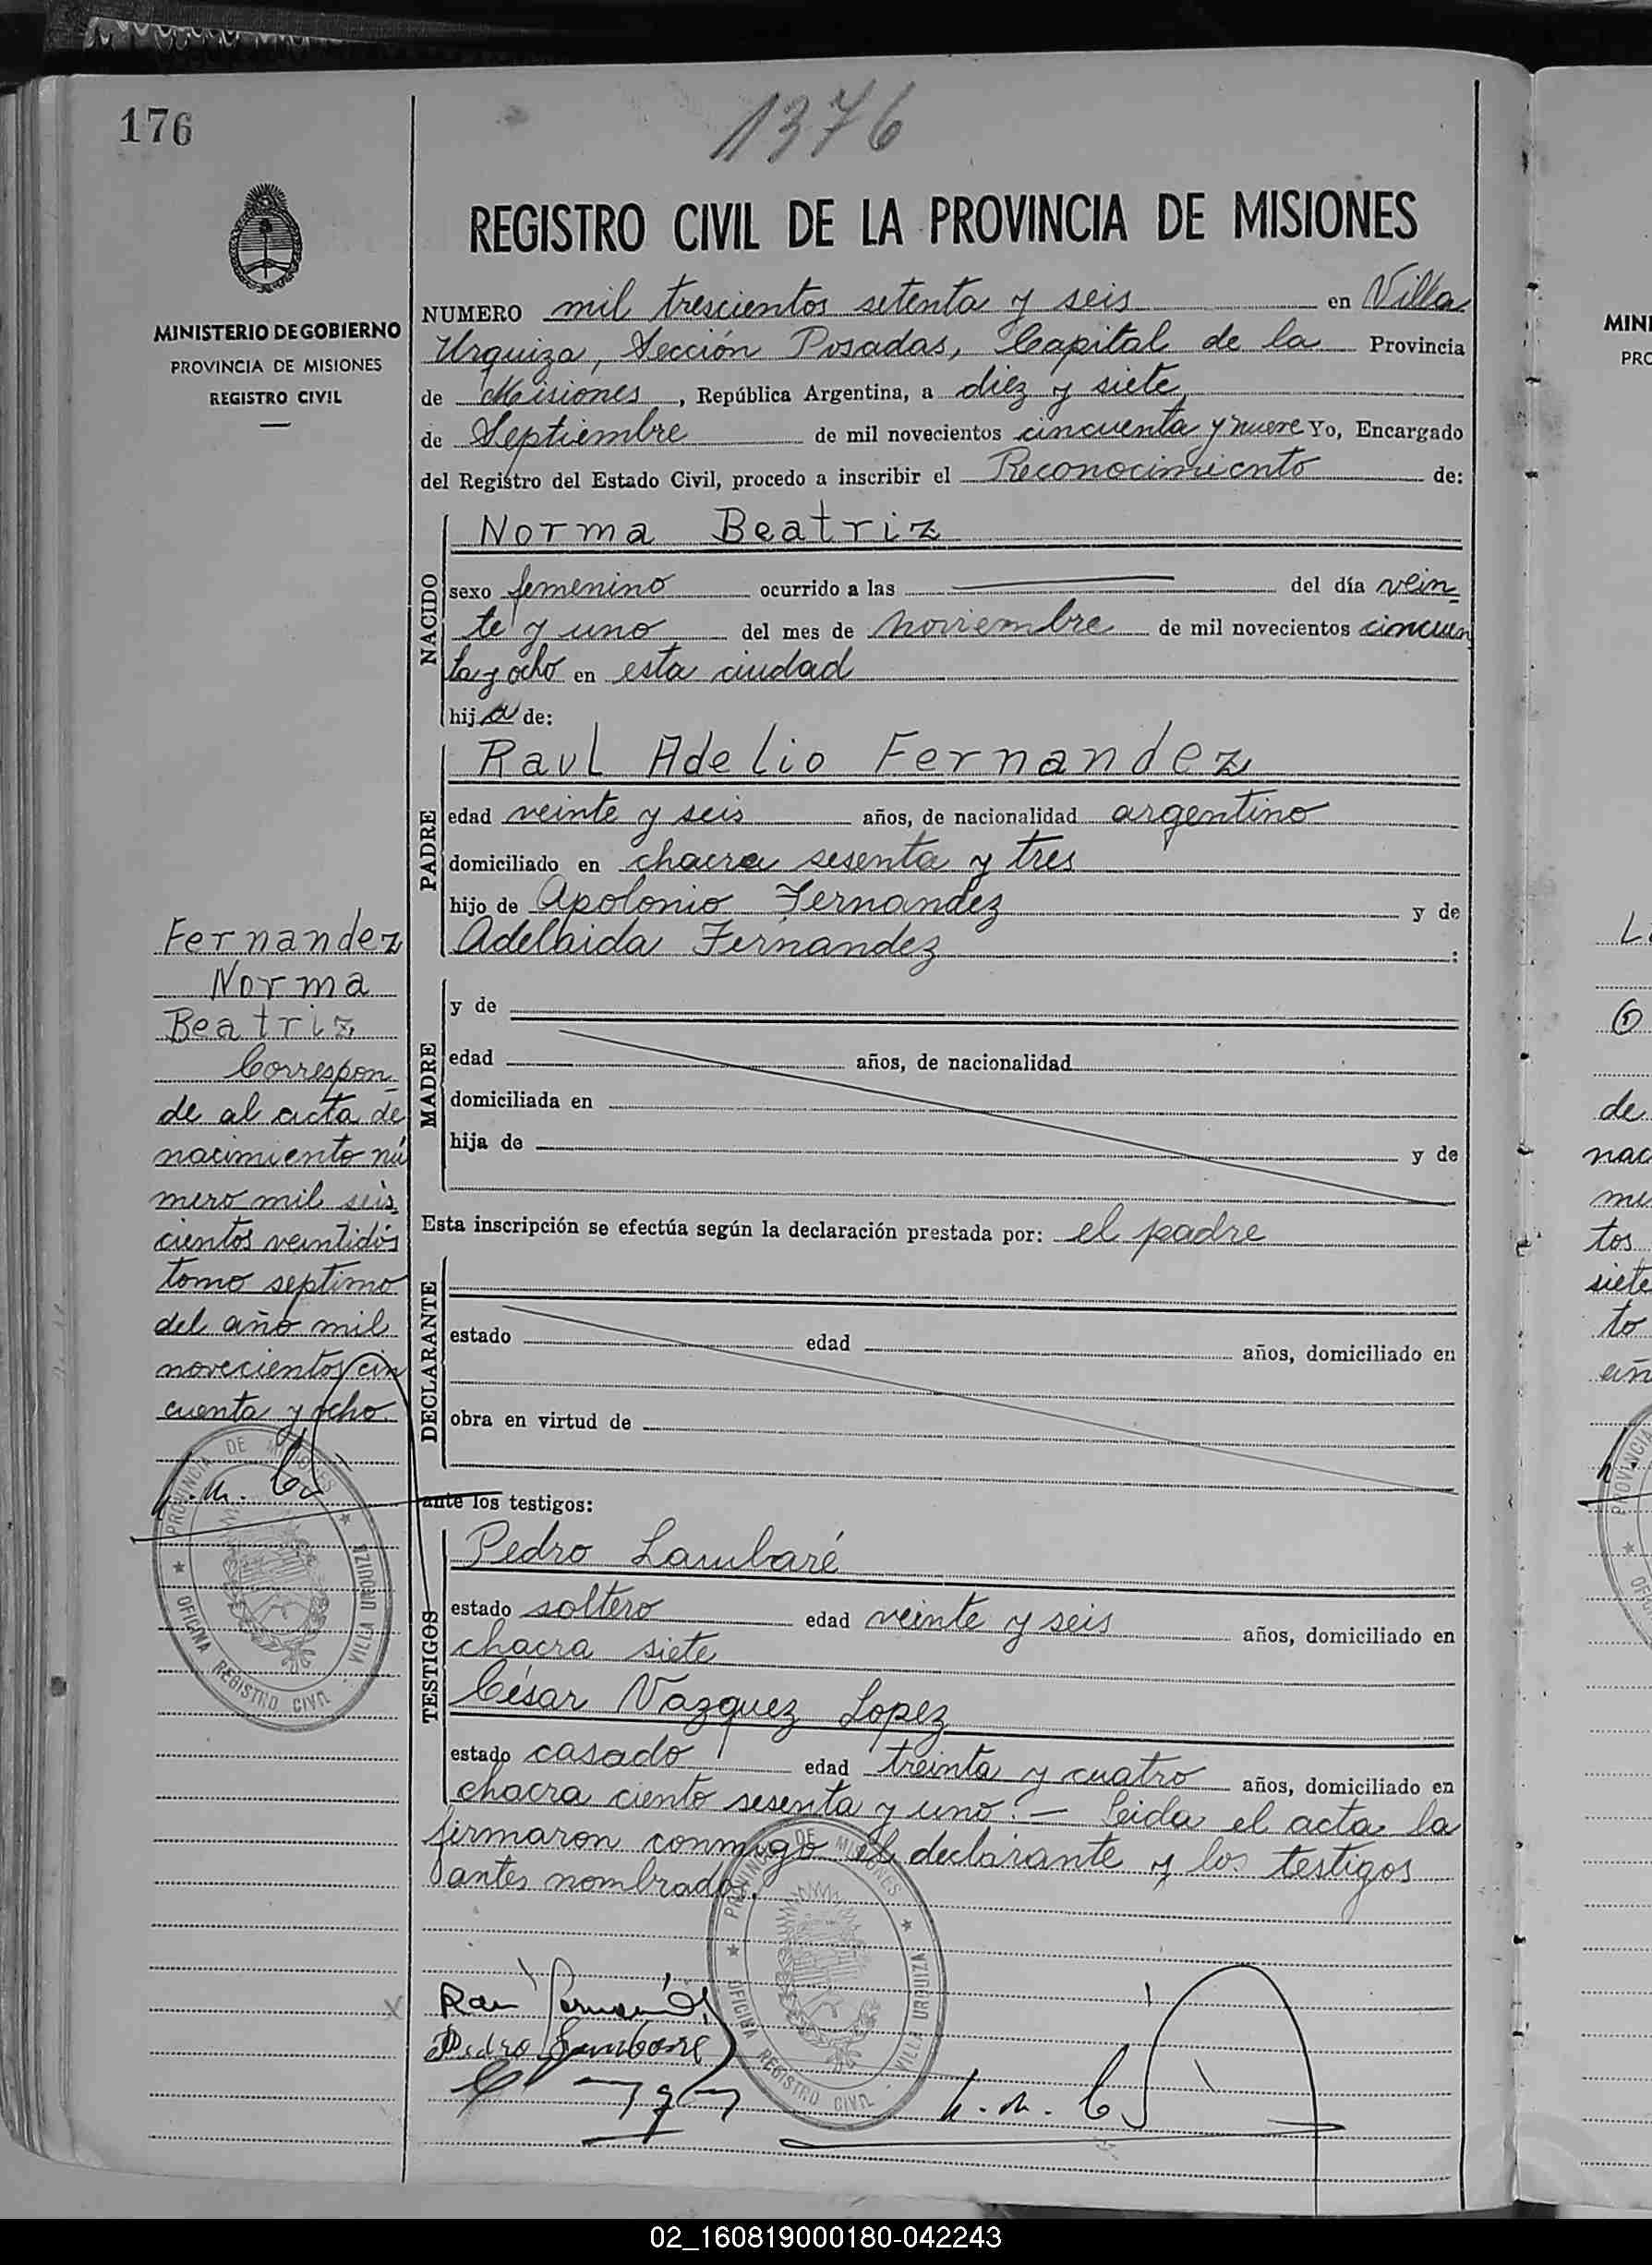 176
1376
MINISTERIO DE GOBIERNO
PROVINCIA DE MISIONES
REGISTRO CIVIL
REGISTRO CIVIL DE LA PROVINCIA DE MISIONES
NUMERO mil trescientos setenta y seis en Villa
Urquiza, Sección Posadas, Capital de la Provincia
de Misiones, República Argentina, a diez y siete
de Septiembre de mil novecientos cincuenta y nueve Yo, Encargado
del Registro del Estado Civil, procedo a inscribir el Reconocimiento de:
NACIDO
Norma Beatriz
sexo femenino ocurrido a las del día vein
te y uno del mes de noviembre de mil novecientos cincuen
ta y ocho en esta ciudad
hija de:
PADRE
Raul Adelio Fernandez
edad veinte y seis años, de nacionalidad argentino
domiciliado en chacra sesenta y tres
hijo de Apolonio Fernandez y de
Adelaida Fernandez :
MADRE
y de
edad años, de nacionalidad
domiciliada en
hija de y de
Esta inscripción se efectúa según la declaración prestada por: el padre
DECLARANTE
estado edad años, domiciliado en
obra en virtud de
ante los testigos:
TESTIGOS
Pedro Lambaré
estado soltero edad veinte y seis años, domiciliado en
chacra siete
César Vazquez Lopez
estado casado edad treinta y cuatro años, domiciliado en
chacra ciento sesenta y uno. — Leida el acta la
firmaron conmigo el declarante y los testigos
antes nombrados.
Fernandez
Norma
Beatriz
Correspon
de al acta de
nacimiento nú
mero mil seis
cientos veintidós
tomo septimo
del año mil
novecientos cin
cuenta y ocho.
PROVINCIA DE MISIONES
OFICINA REGISTRO CIVIL - VILLA URQUIZA
PROVINCIA DE MISIONES
OFICINA REGISTRO CIVIL - VILLA URQUIZA
Pedro Lambaré
MINI
PRO
de
nac
tos
siete
to
02_160819000180-042243